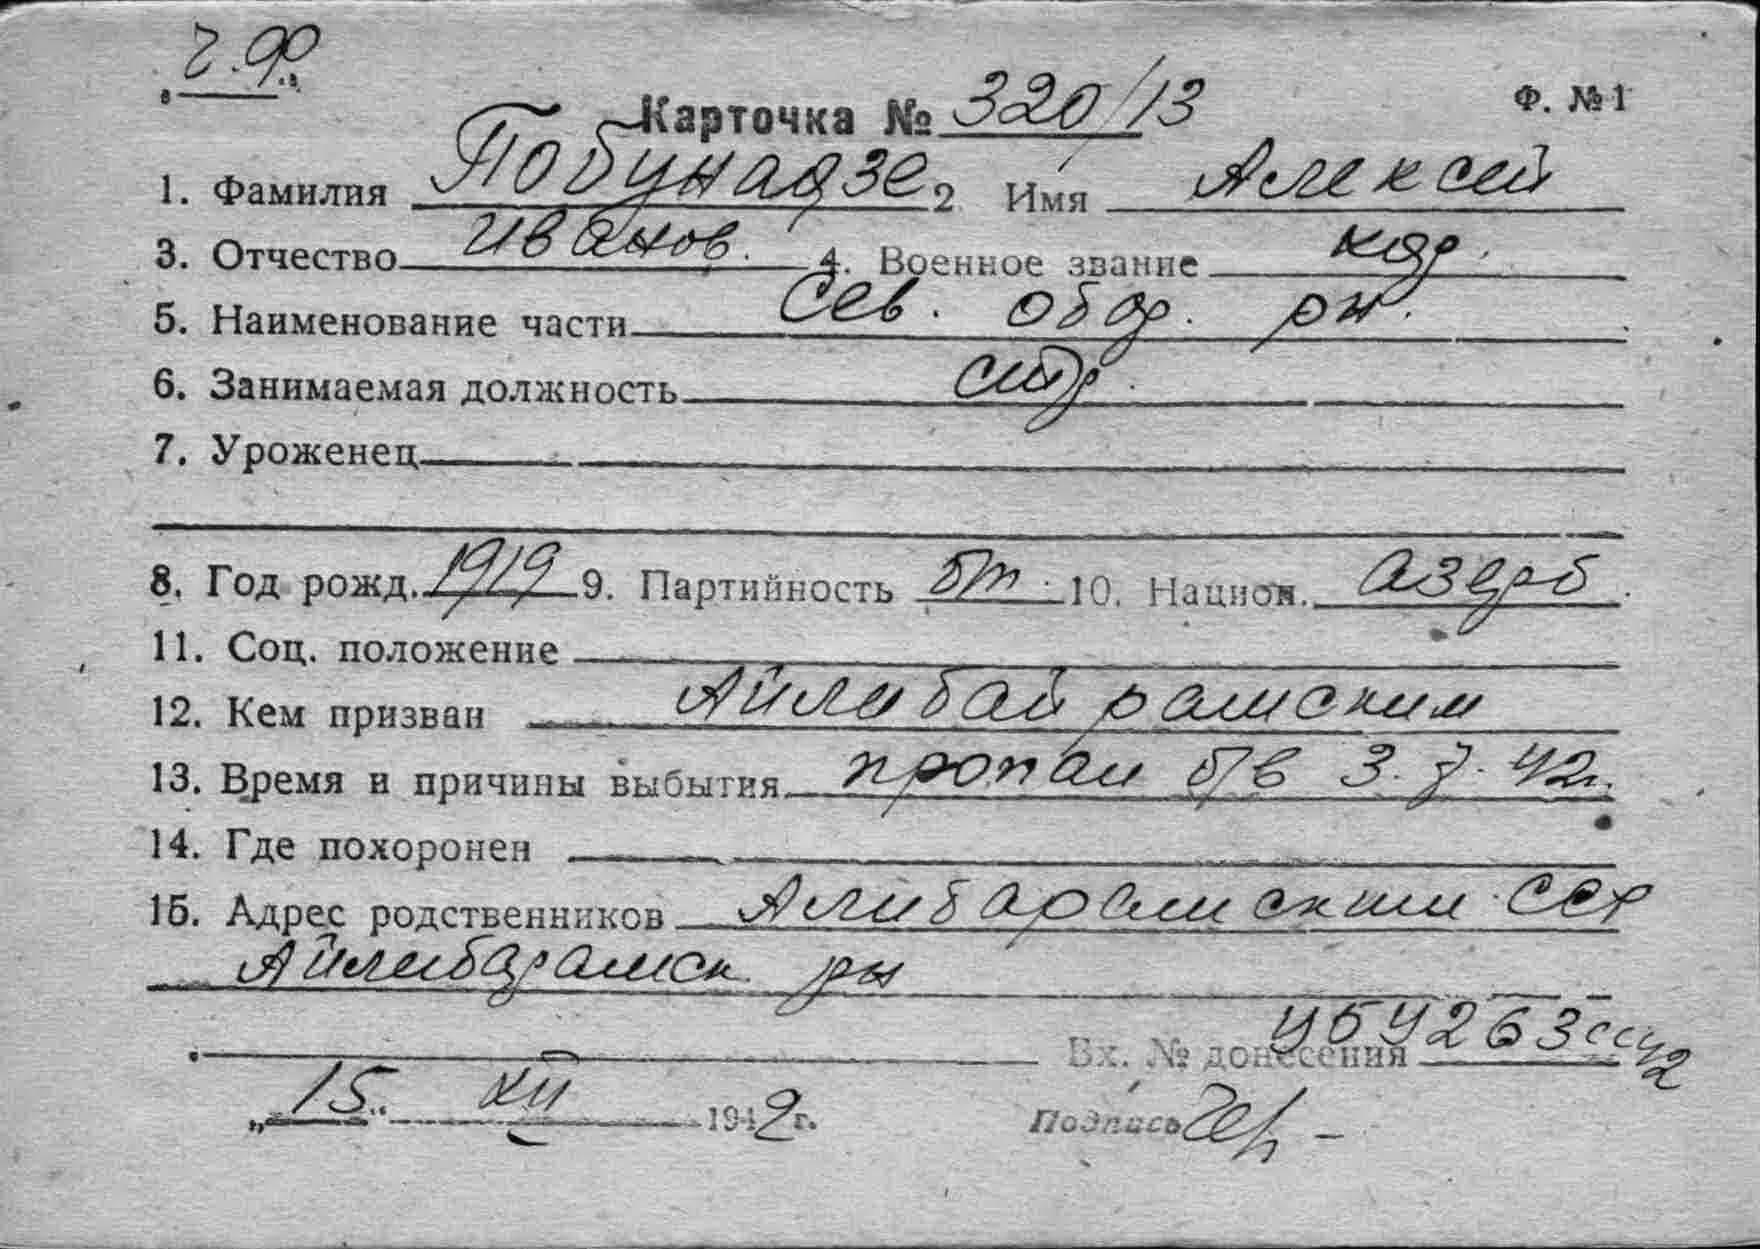 Ч.Ф.
Карточка № 320/13 Ф. № 1
1. Фамилия Побунадзе 2 Имя Алексей
3. Отчество Иванов. 4. Военное звание кар.
5. Наименование части Сев. обор. рн.
6. Занимаемая должность стр.
7. Уроженец
8. Год рожд. 1919 9. Партийность б/п 10. Национ. азерб.
11. Соц. положение
12. Кем призван Айлибайрамским
13. Время и причины выбытия пропал б/в 3.7.42г.
14. Где похоронен
15. Адрес родственников Алибарамским ССР
Айлибарамск рн
Вх. № донесения
"15" XII 1942 г. Подпись